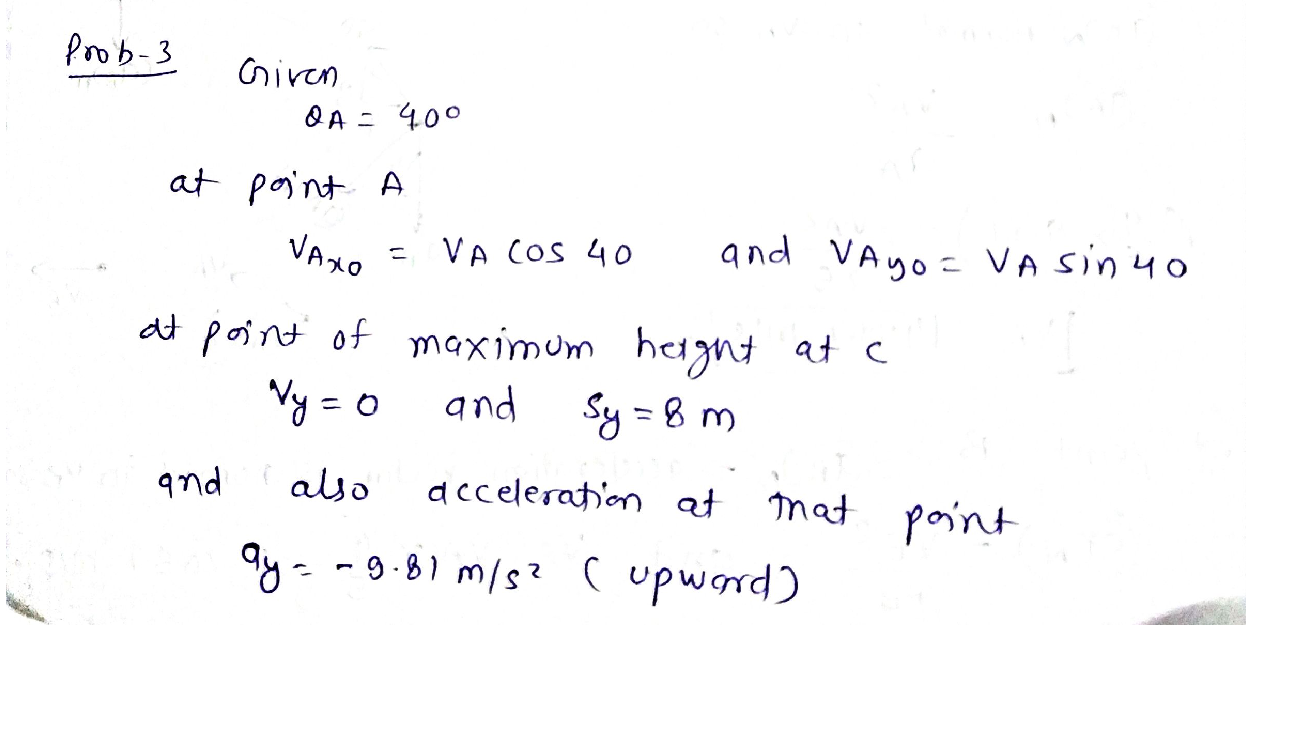 Prob-3
Given
θA = 40°
at point A
VAxo = VA cos 40 and VAyo = VA sin 40
at point of maximum height at c
Vy = 0 and Sy = 8 m
and also acceleration at that point
ay = -9.81 m/s² (upword)